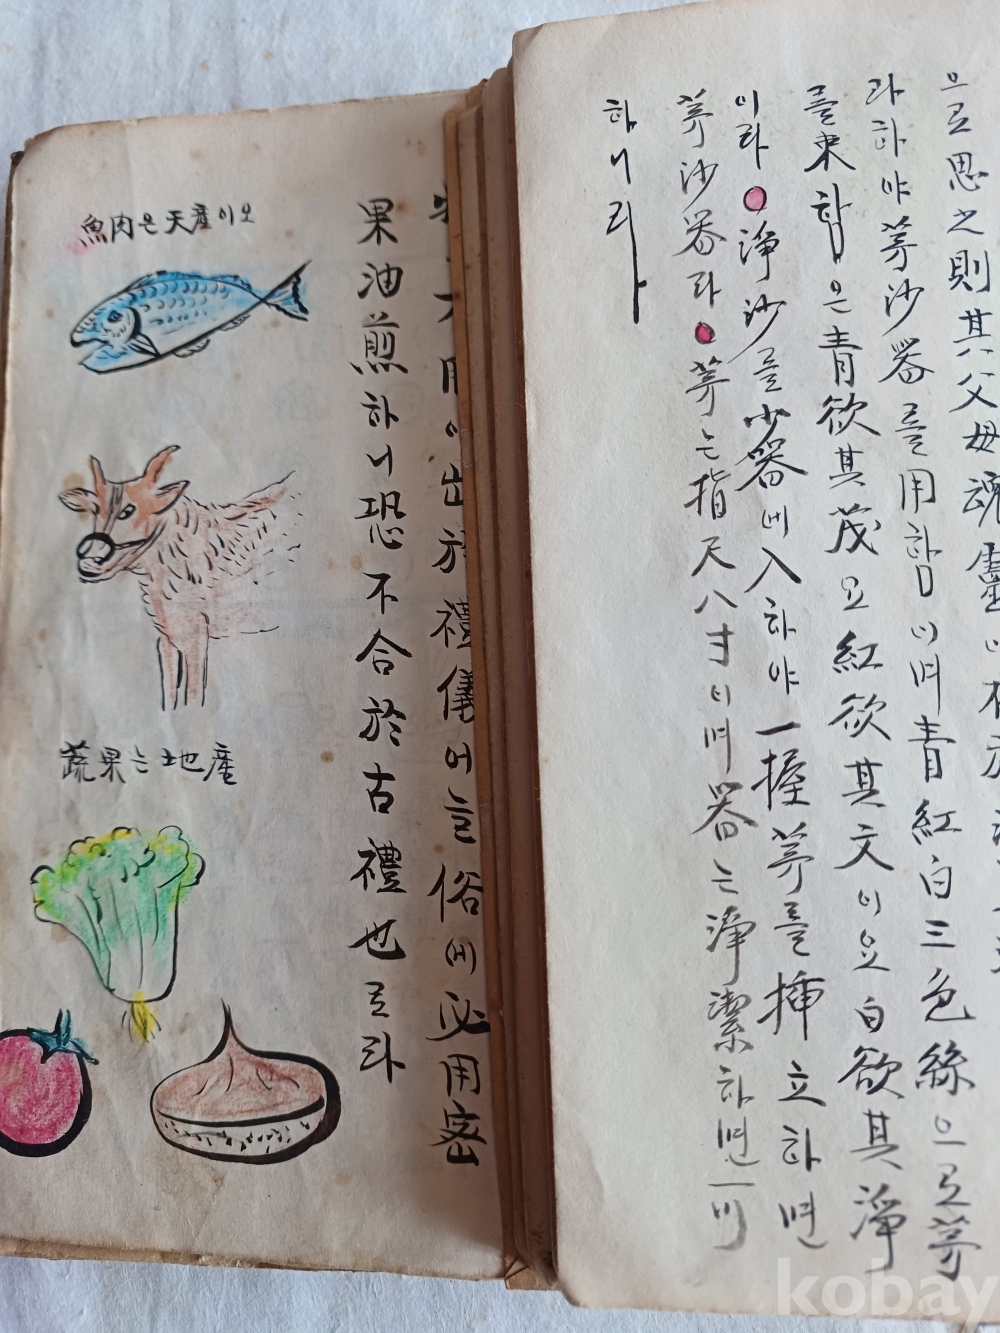 으로思之則其父母魂靈이
라하야茅沙器를用함이며青紅白三色絲으로茅
를束함은青欲其茂요紅欲其文이요白欲其淨
이라 淨沙를少器에入하야一握茅를揷立하면
茅沙器라 茅는指尺八寸이며器는淨潔하면
하니라
用이出於禮儀어늘俗에必用密
果油煎하니恐不合於古禮也로라
魚肉은天産이오
蔬果는地産
kobay